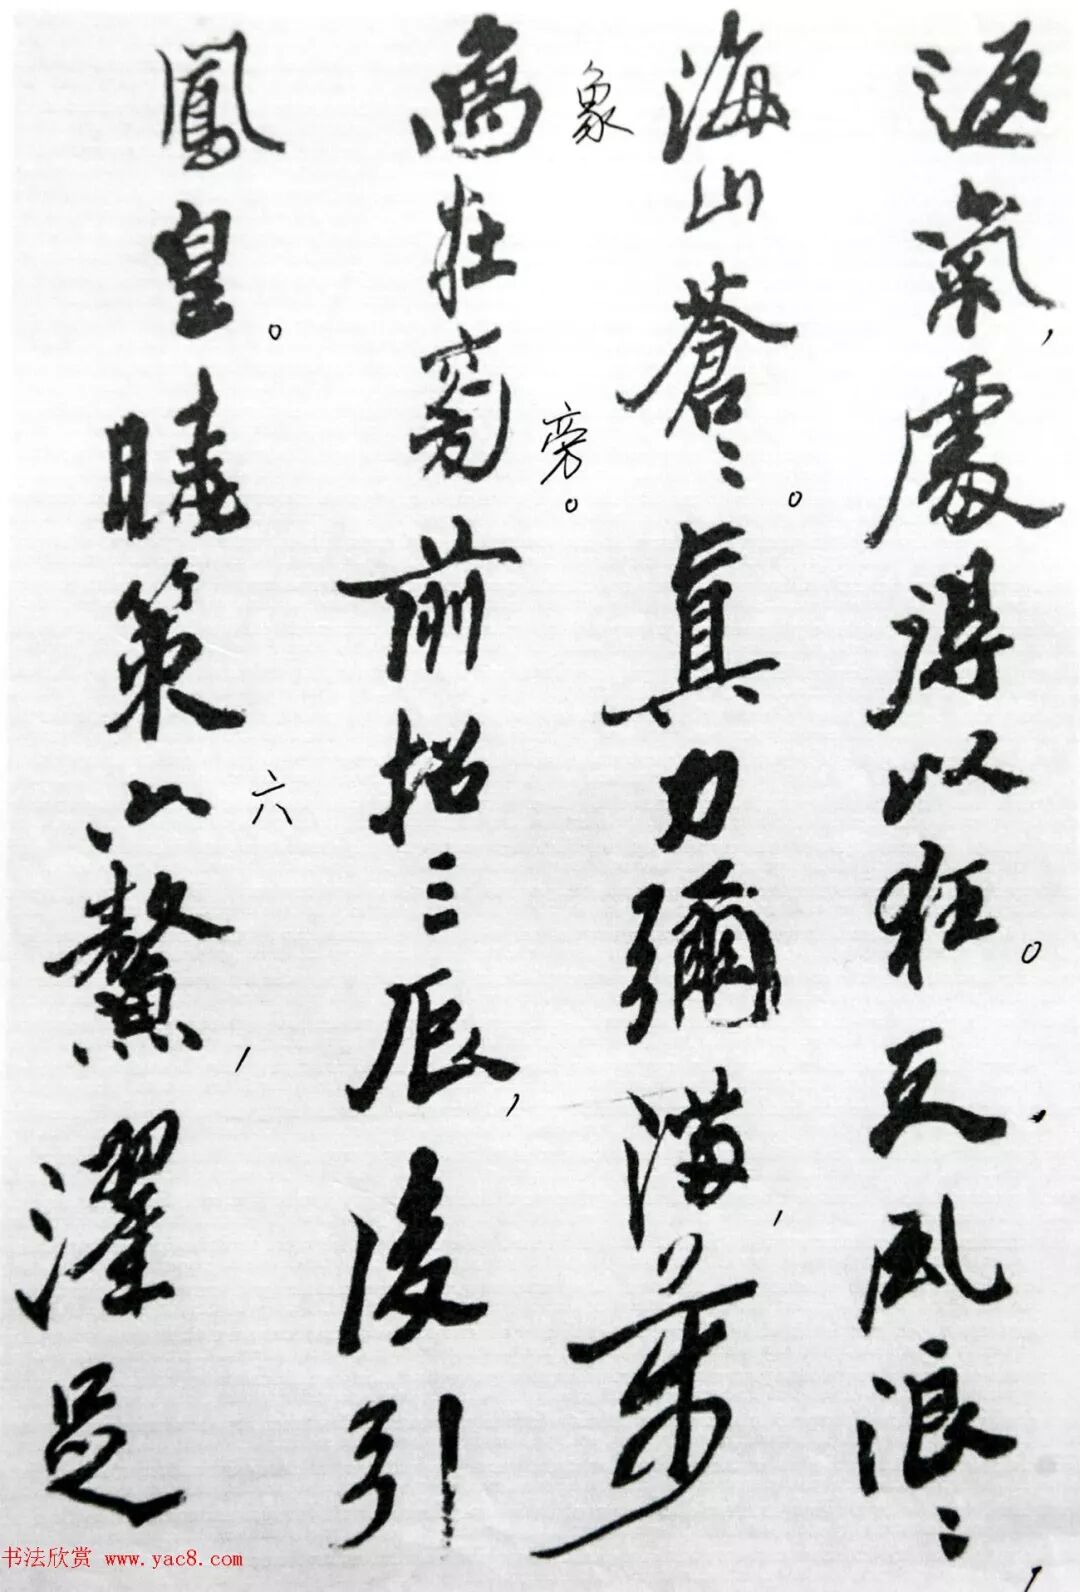 返氣,處得以狂。天風浪〻,
海山蒼〻。真力彌滿,萬
象
旁。
象在旁前招三辰,後引
六
鳳皇。曉策六鰲,濯足
书法欣赏 www.yac8.com